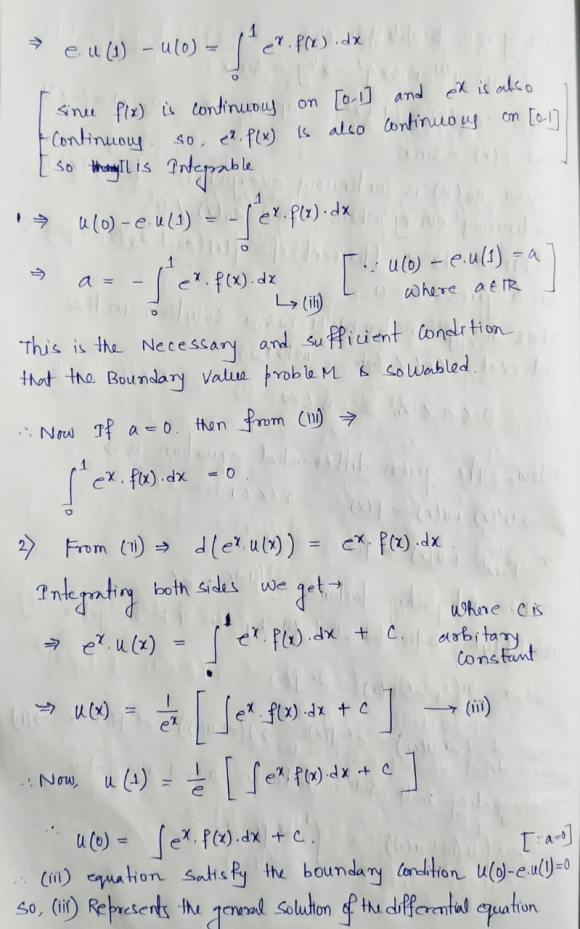 ⇒ e.u(1) - u(0) = ∫₀¹ eˣ.f(x).dx
[ since f(x) is continuous on [0,1] and eˣ is also
continuous. so, eˣ.f(x) is also continuous on [0,1]
so It is Integrable ]
⇒ u(0) - e.u(1) = - ∫₀¹ eˣ.f(x).dx
⇒ a = - ∫₀¹ eˣ.f(x).dx ↳ (iii) [ ∵ u(0) - e.u(1) = a
where a ∈ ℝ ]
This is the Necessary and sufficient condition
that the Boundary value probleM is solvabled.
∴ Now If a = 0. then from (iii) ⇒
∫₀¹ eˣ.f(x).dx = 0.
2) From (ii) ⇒ d(eˣ.u(x)) = eˣ.f(x).dx
Integrating both sides we get →
⇒ eˣ.u(x) = ∫ eˣ.f(x).dx + C. where c is
arbitary
constant
⇒ u(x) = 1/eˣ [ ∫ eˣ.f(x).dx + c ] → (iii)
∴ Now, u(1) = 1/e [ ∫ eˣ.f(x).dx + c ]
∴ u(0) = ∫ eˣ.f(x).dx + c. [∵ a=0]
∴ (iii) equation satisfy the boundary condition u(0)-e.u(1)=0
so, (iii) Represents the general solution of the differential equation